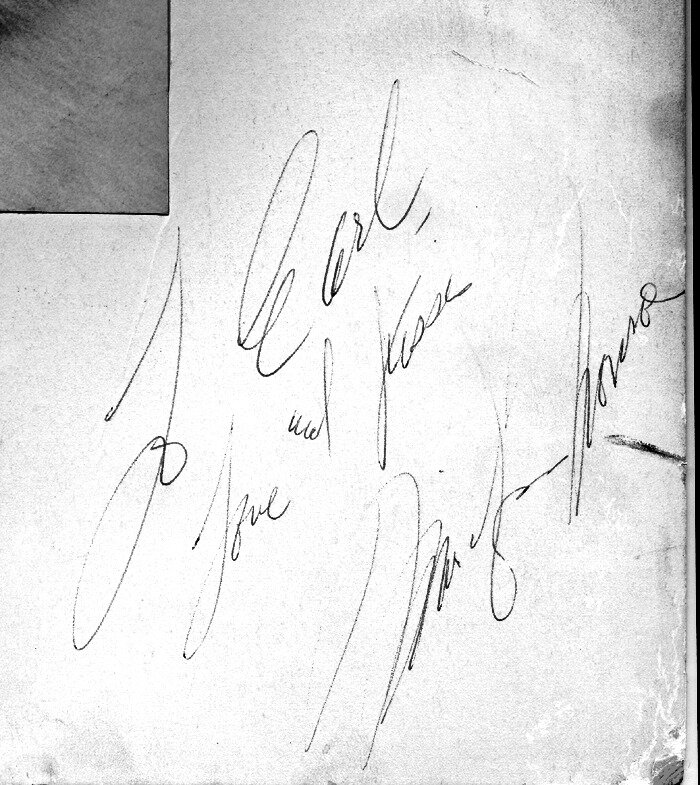 To Earl,
Love and kisses
Marilyn Monroe